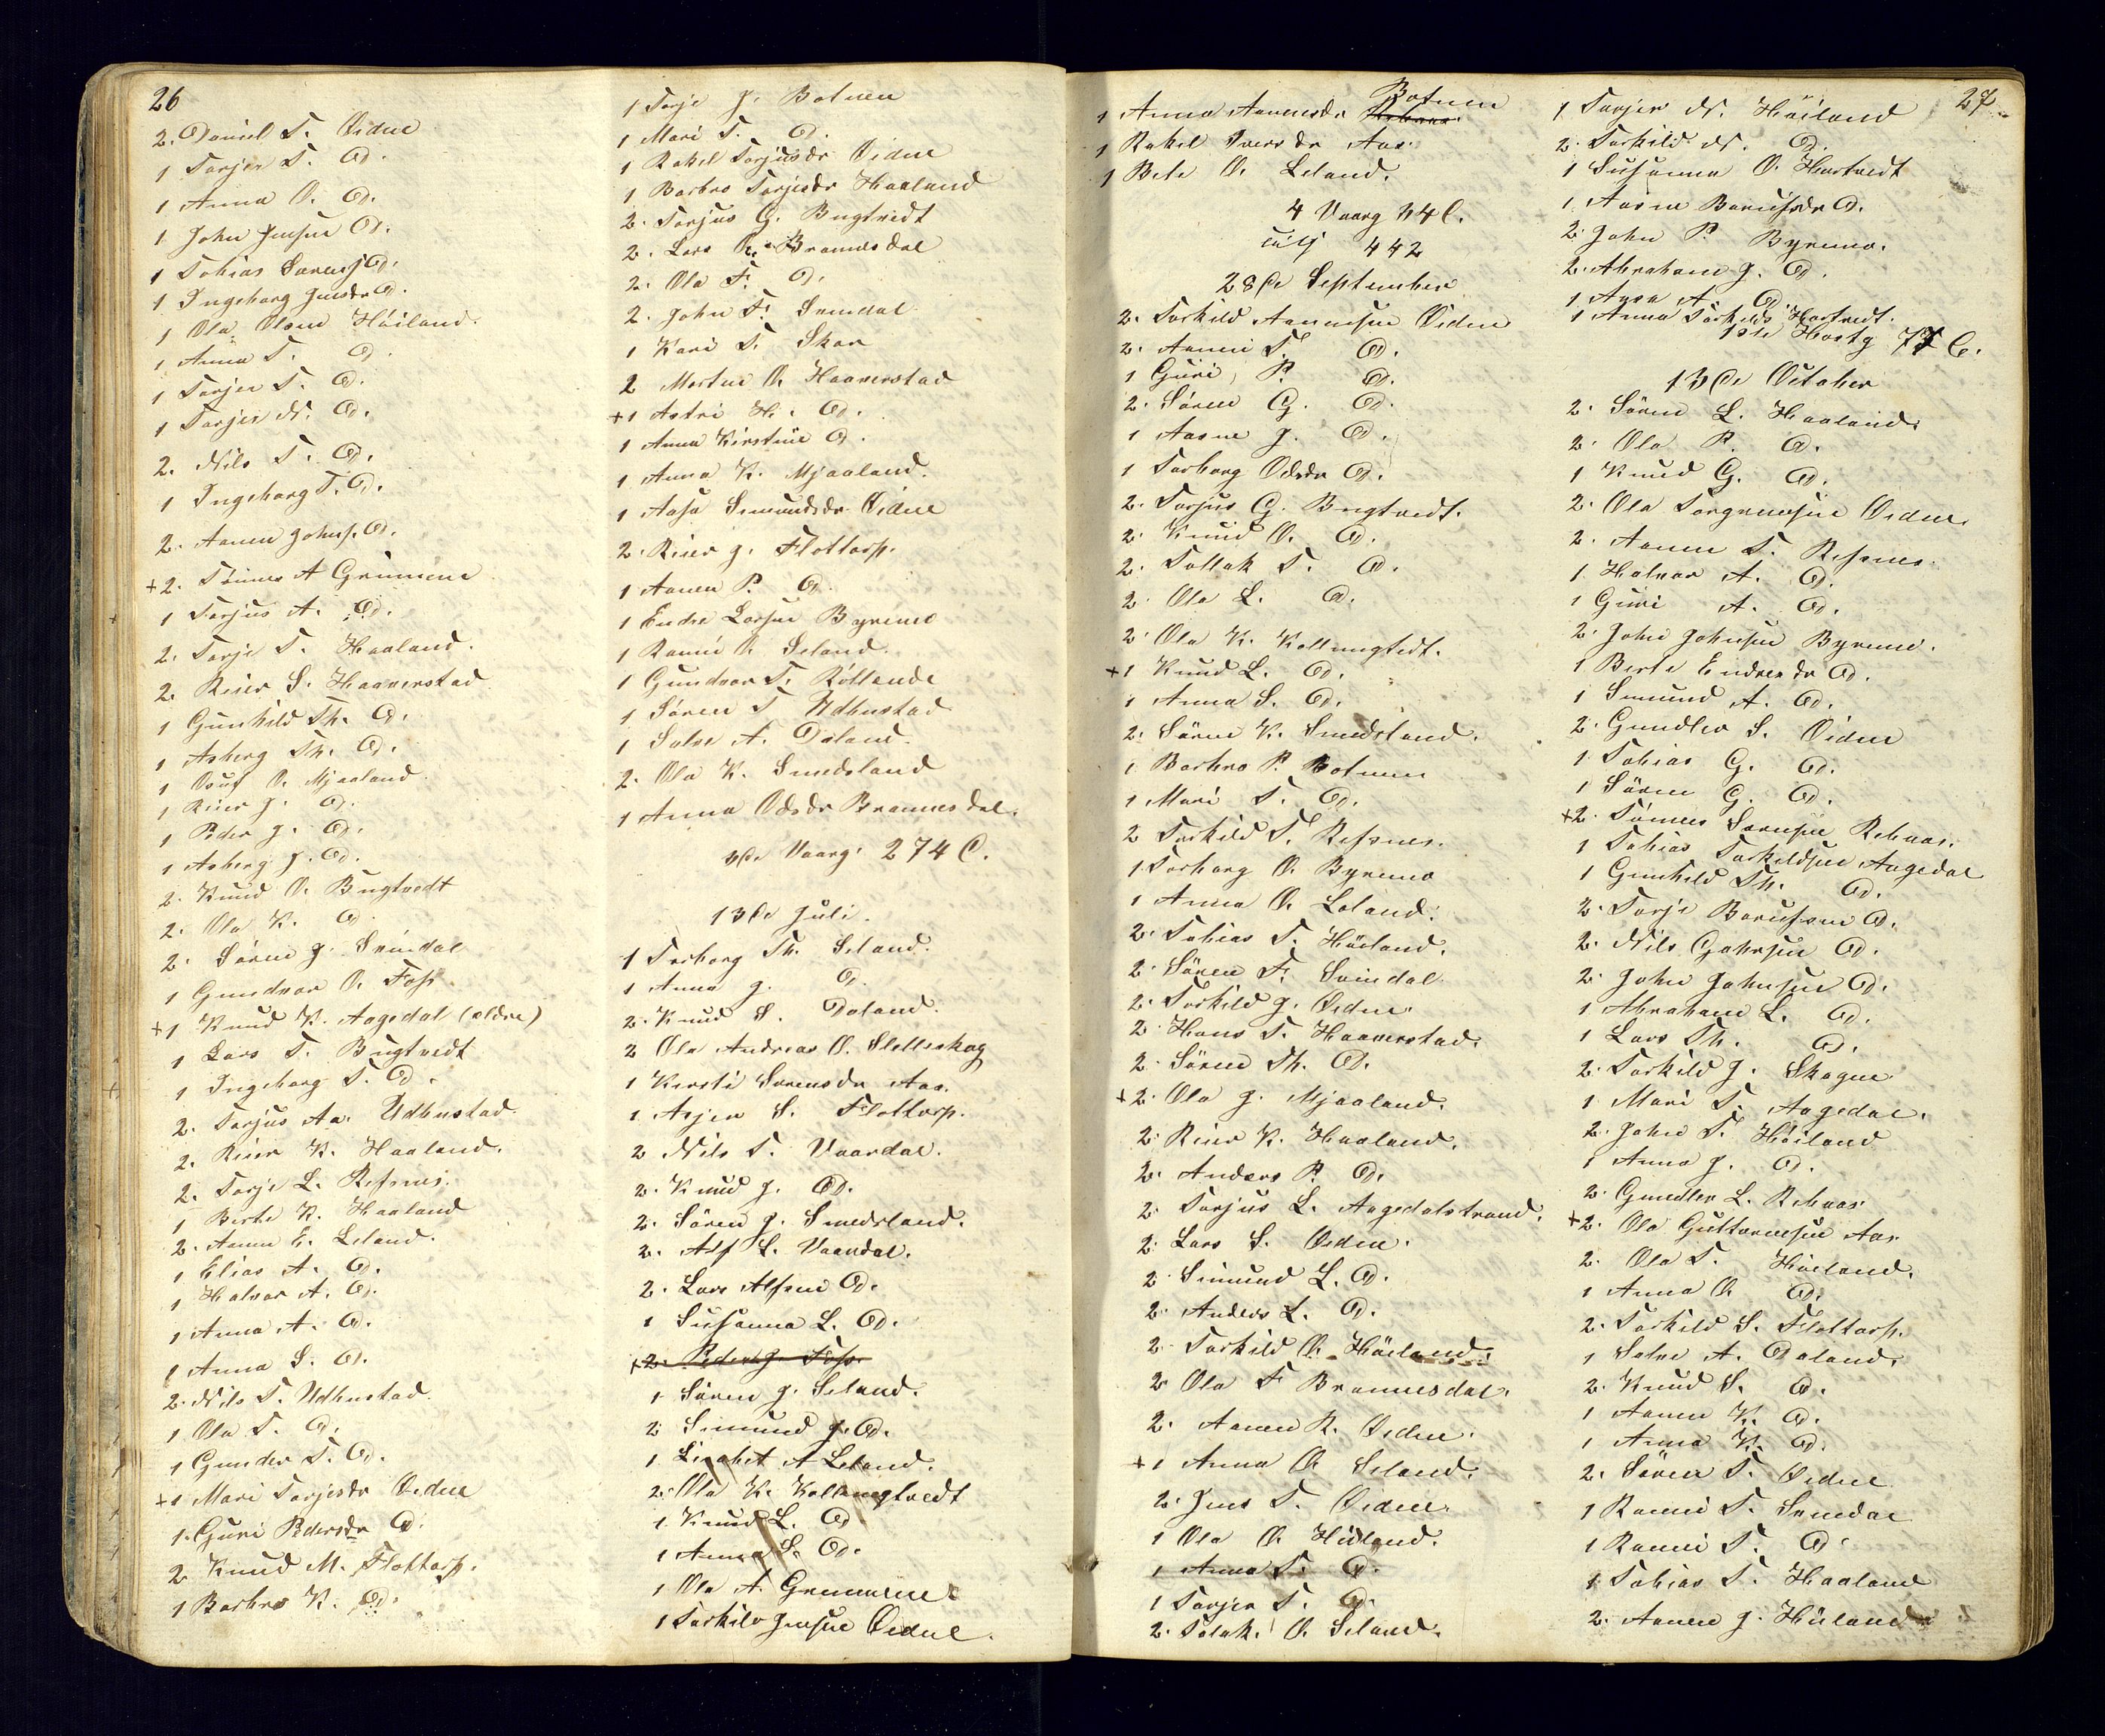 26
2. Daniel T. Eidne
1 Torjer T. Do.
1 Anna O. Do.
1 John Jensen Do.
1 Tobias Sørensj Do.
1 Ingeborg Jensdr Do.
1 Ola Olsen Höiland.
1 Anna T. Do
1 Torjer T. Do.
1 Torjer N. Do.
2. Nils T. Do.
1 Ingeborg T. Do.
2. Aanen Johns. Do.
+2. Tönnes A Grummene
1 Torjus A. Do.
2. Torje T. Haaland.
2. Reier S. Haaverstad
1 Gunhild Th. Do.
1 Asberg Th. Do.
1 Osuf O. Mjaaland
1 Reier J. Do.
1 Peder J. Do.
1 Asberg J. Do.
2. Knud O. Bugtvedt
2. Ola K. Do
2. Sören J. Svindal
1 Gundvor O. Foss
+1 Knud K. Aagedal (ældre)
1 Lars T. Bugtvedt
1 Ingeborg T. Do.
2. Torjus Aa. Udbustad
2. Reier K. Haaland.
2. Torje L. Refsnes.
1 Berte K. Haaland
2. Aanen E. Leland.
1 Elias A. Do.
1 Halvor A. Do.
1 Anna A. Do.
1 Anna S. Do.
2. Nils T. Udbustad.
1 Ola T. Do.
1 Gunder T. Do.
+1 Mari Torjesdr Eidne
1. Guri Pedersdr Do.
2 Knud M. Flottorp.
1 Barbro K. Do.
1 Torje J. Botnen
1 Mari T. Do.
1 Rakel Torjusdr Eidne
1 Barbro Torjesdr Haaland
2. Torjus G. Bugtvedt
2. Lars R. Brannesdal
2. Ola F. Do.
2. John F. Svindal
1 Kari T. Skar
2 Morten O. Haaverstad
+1 Astri H. Do.
1 Anna Kirstine Do.
1 Anna K. Mjaaland.
1 Aasa Simundsdr Eidne
2. Reier J. Flottorp.
1 Aanen P. Do.
1 Endre Larsen Byremo
1 Rannei O. Seland.
1 Gundvor T. Röllende
1 Sören T Udbustad
1 Salve A. Daland.
2. Ola K. Smedsland
1 Anna Odsdr Brannesdal.
3de Vaarg. 274 C.
13de Juli.
1 Torborg Th. Seland.
1 Anna J. Do.
2. Knud S. Daland.
2 Ola Andreas O. Stelleskog
1 Kirsti Sörensdr Aas.
1 Asjer S. Flottorp.
2 Nils T. Vaardal.
2. Knud J. Do.
2. Sören J. Smedsland.
2. Alf L. Vaardal.
2. Lars Alfsen Do.
1 Susanna L. Do.
+2. Peder J. Foss.
1 Sören J. Seland.
2 Simund J. Do.
1. Lisabet A Leland.
2. Ola K. Kollungtvedt
1. Knud L. Do
1 Anna S. Do.
1 Ola A. Grummene
1 Torkild Jensen Eidne.
Botnen
1 Anna Aanensdr
1 Rakel Iversdr Aas.
1 Bete O. Leland.
4 Vaarg 44 C.
442
28de September
2. Torkild Aanensen Eidne
2. Aanen T. Do.
1 Guri P. Do.
2. Sören G. Do.
1 Aasne J. Do.
1 Torborg Odsdr Do.
2. Torjus G. Bugtvedt.
2. Knud O. Do.
2. Tollak T. Do.
2 Ola L. Do.
2. Ola K. Kollungtvdt.
+1 Knud L. Do.
1 Anna S. Do.
2. Sören K. Smedsland.
1. Barbro P. Botnen
1 Mari T. Do.
2 Torkild T. Refsnes.
1 Torborg O. Byremo
1 Anna O. Leland.
2. Tobias T. Höiland.
2. Sören F. Svindal
2. Torkild J. Eidne.
2. Hans T. Haaverstad.
2. Sören Th. Do.
+2. Ola J. Mjaaland.
2. Reier K. Haaland.
2. Anders P. Do.
2. Torjus L. Aagedalstrand.
2. Lars S. Eidne.
2. Simund L. Do.
2. Anders L. Do.
2. Torkild O. Höiland.
2. Ola F Brannesdal.
2. Aanen R. Eidne.
+1 Anna O. Seland.
2. Jens T. Eidne.
1 Ola O. Höiland.
1 Anna T. Do.
1 Torjer T. Do.
2. Tolak O. Seland.
27
1 Torjer N. Höiland
2. Torkild N. Do.
1 Susanna O. Hortvedt
1 Aasne Berulsdr Do.
2. John P. Byremo.
2. Abraham J. Do.
1 Aasa A. Do.
1 Anna Torkilds Hortvedt.
1ste Hostg 77 C.
13de October
2. Sören L. Haaland.
2. Ola P. Do.
1 Knud G. Do.
2. Ola Torgrimsen Eidne.
2. Aanen T. Refsnes.
1. Halvor A. Do.
1 Guri A. Do.
2. John Johnsen Byremo.
1 Berte Endresdr Do.
1 Simund A. Do.
2. Gundler S. Eidne
1. Tobias G. Do.
1 Sören G. Do.
+2. Tönnes Sörensen Rebaas.
1 Tobias Torkildsen Aagedal
1 Gunhild Th. Do.
2. Torje Berulsen Do.
2. Nils Johnsen Do.
2. John Johnsen Do.
1 Abraham L. Do.
1 Lars Th. Do.
2. Torkild J. Skogen
1 Mari T. Aagedal.
2. John T. Höiland
1 Anna J. Do.
2. Gundler L. Rebaas
+2. Ola Guttormsen Aas.
2. Ola T. Höiland.
1 Anna O. Do.
2. Torkild S. Flottorp.
1 Salve A. Daland.
2. Knud S. Do.
1 Aanen K. Do.
1 Anna K. Do.
2. Sören T. Eidne
1 Rannei T. Svindal
1 Rannei T. Do.
1. Tobias T. Haaland
2. Aanen J. Höiland